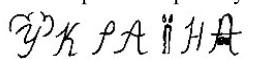 УКРАЇНА